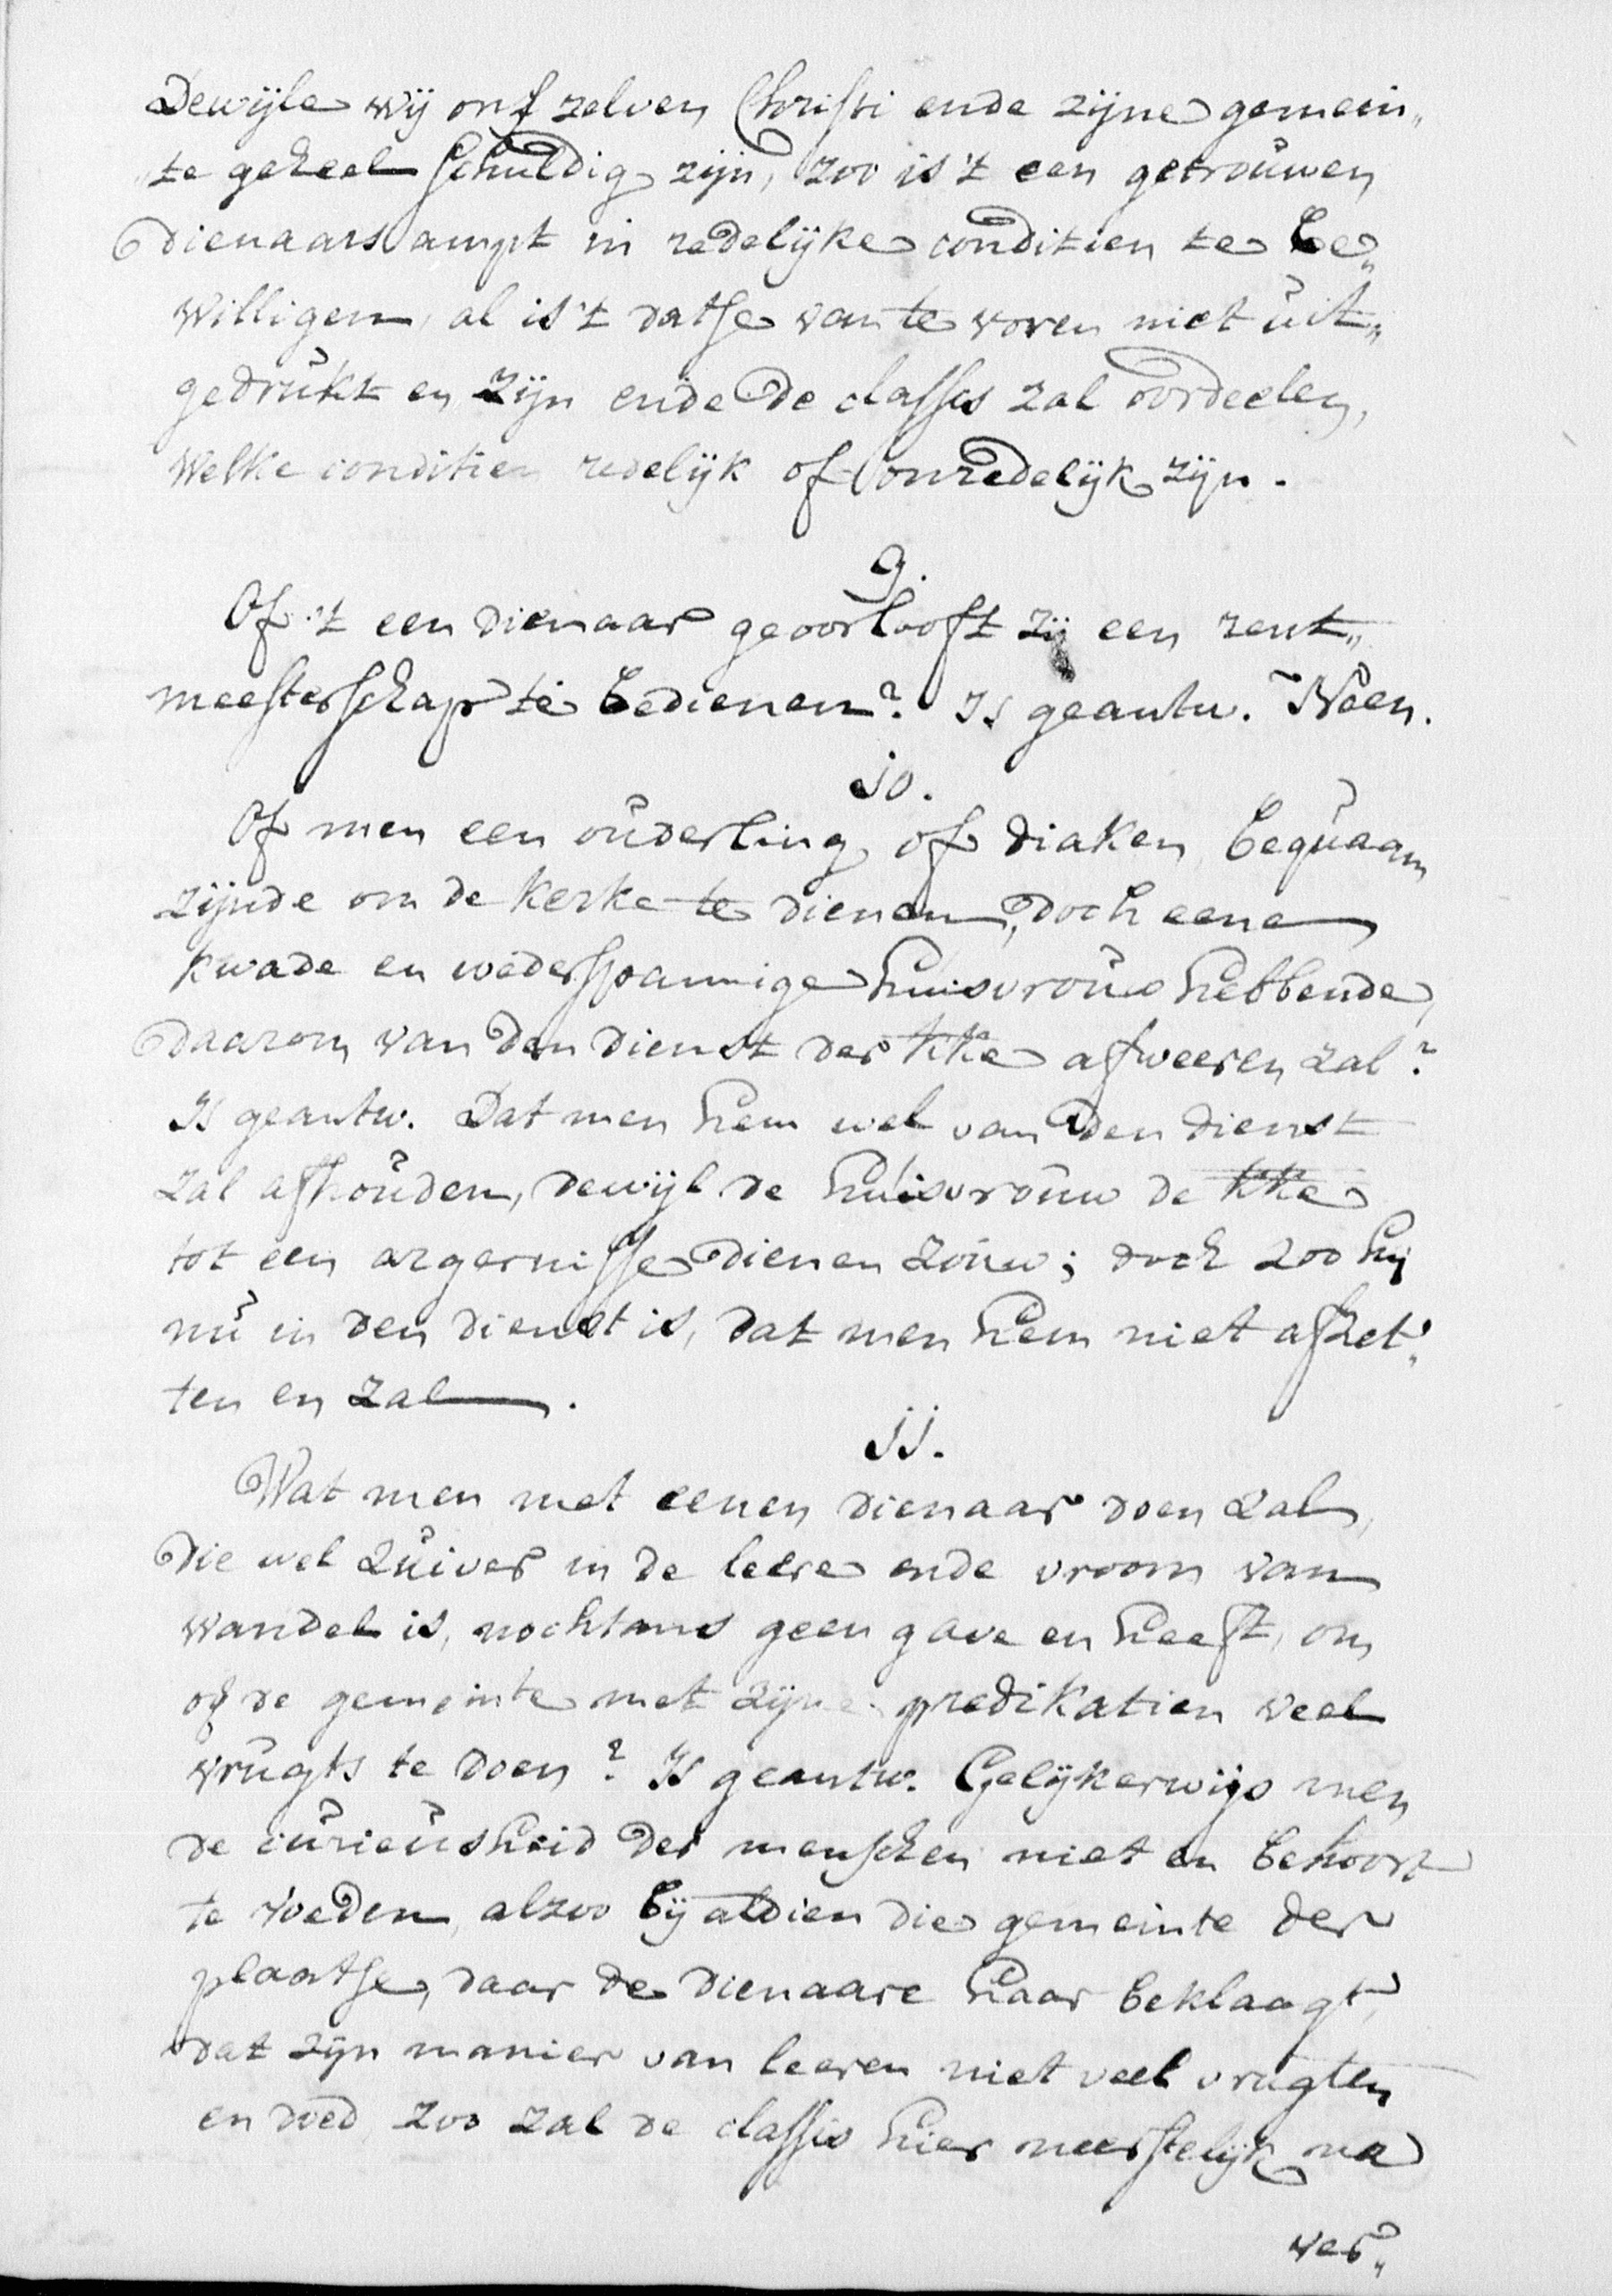 Dewijle wij ons zelven Christi ende zijne gemein„
te geheel schuldig zijn, zoo is 't een getrouwen
dienaars ampt in redelijke conditien te be„
willigen, al is 't datse van te voren niet uit„
gedrukt en zijn ende de classis zal oordeelen,
welke conditien redelijk of onredelijk zijn.
9.
Of 't een dienaar geoorlooft zij een rent„
meesterschap te bedienen? Is geantw. Neen.
10.
Of men een ouderling of diaken, bequaam
zijnde om de kerke te dienen, doch eene
kwade en wederspannige huisvrouw hebbende,
daarom van den dienst der kke afweeren zal?
Is geantw. Dat men hem wel van den dienst
zal afhouden, dewijl de huisvrouw de kke
tot een argernisse dienen zouw; doch zoo hij
nu in den dienst is, dat men hem niet afzet„
ten en zal.
11.
Wat men met eenen dienaar doen zal,
die wel zuiver in de leere ende vroom van
wandel is, nochtans geen gave en heeft, om
op de gemeinte met zijne predikatien veel
vrugts te doen? Is geantw. Gelijkerwijs men
de curieusheid der menschen niet en behoort
te voeden, alzoo bij aldien die gemeinte der
plaatse, daar de dienaare haar beklaagt,
dat zijn manier van leeren niet veel vrugten
en doed, zoo zal de classis hier neerstelijk na
ver„